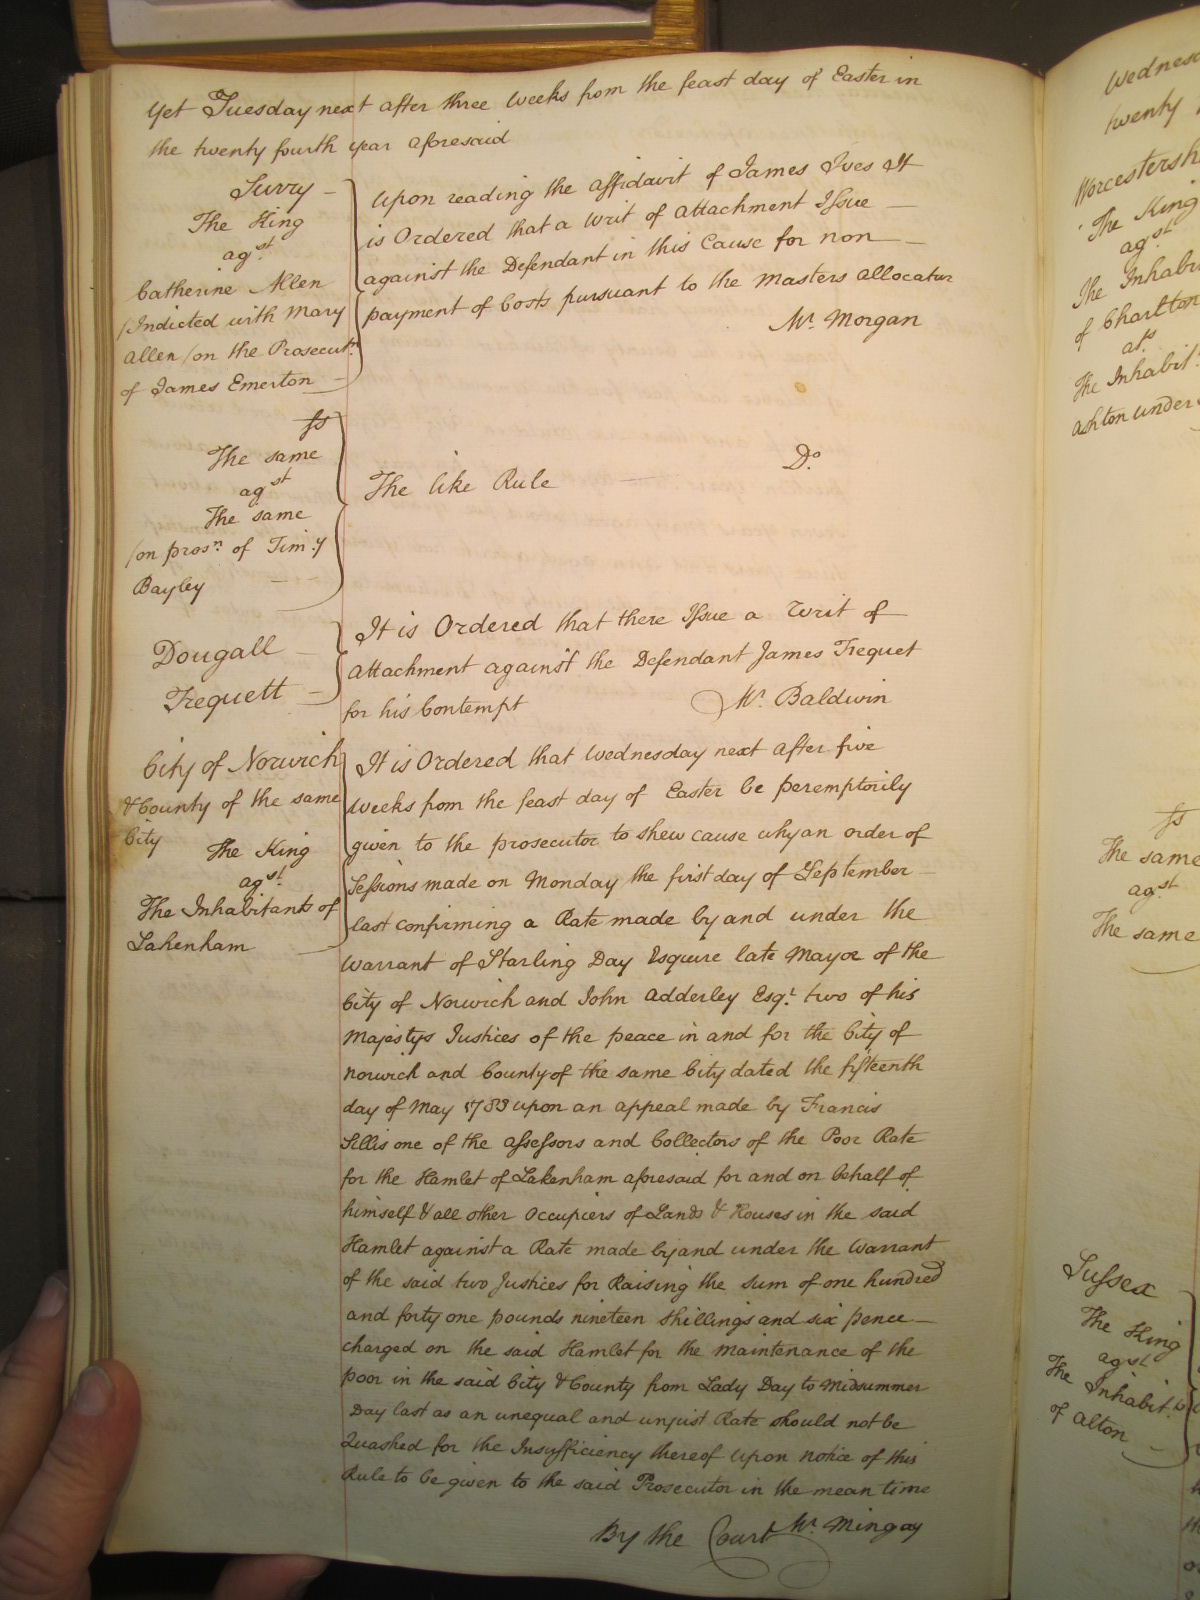 Yet Tuesday next after three Weeks from the feast day of Easter in
the twenty fourth year aforesaid
Surry –
The King
agst.
Catherine Allen
/Indicted with Mary
Allen /on the Prosecutn.
of James Emerton –
Upon reading the affidavit of James Ives It
is Ordered that a Writ of Attachment Issue –
against the Defendant in this Cause for non –
payment of Costs pursuant to the Masters allocatur
Mr. Morgan
Ss
The same
agst
The same
/on prosn. of Tim.y
Bayley
The like Rule – Do.
Dougall –
Frequett –
It is Ordered that there Issue a Writ of
attachment against the Defendant James Frequet
for his Contempt Mr. Baldwin
City of Norwich
& County of the same
City The King
agst.
The Inhabitants of
Lakenham
It is Ordered that Wednesday next after five
Weeks from the feast day of Easter be peremptorily
given to the prosecutor to shew cause why an order of
Sessions made on Monday the first day of September –
last confirming a Rate made by and under the
Warrant of Starling Day Esquire late Mayor of the
City of Norwich and John Adderley Esqr. two of his
Majestys Justices of the peace in and for the City of
Norwich and County of the same City dated the fifteenth
day of May 1783 upon an appeal made by Francis
Sillis one of the assessors and Collectors of the Poor Rate
for the Hamlet of Lakenham aforesaid for and on behalf of
himself & all other Occupiers of Lands & Houses in the said
Hamlet against a Rate made by and under the Warrant
of the said two Justices for Raising the sum of one hundred
and forty one pounds nineteen shillings and six pence –
charged on the said Hamlet for the maintenance of the
poor in the said City & County from Lady Day to Midsummer
Day last as an unequal and unjust Rate should not be
Quashed for the Insufficiency thereof Upon notice of this
Rule to be given to the said Prosecutor in the mean time
By the Court Mr. Mingay
twenty
The King
agst
of Charlton
ats
The Inhabit.
Ashton under
Ss
The same
agst
The same
Sussex
The King
agst
The Inhabit.ts
of Alton –